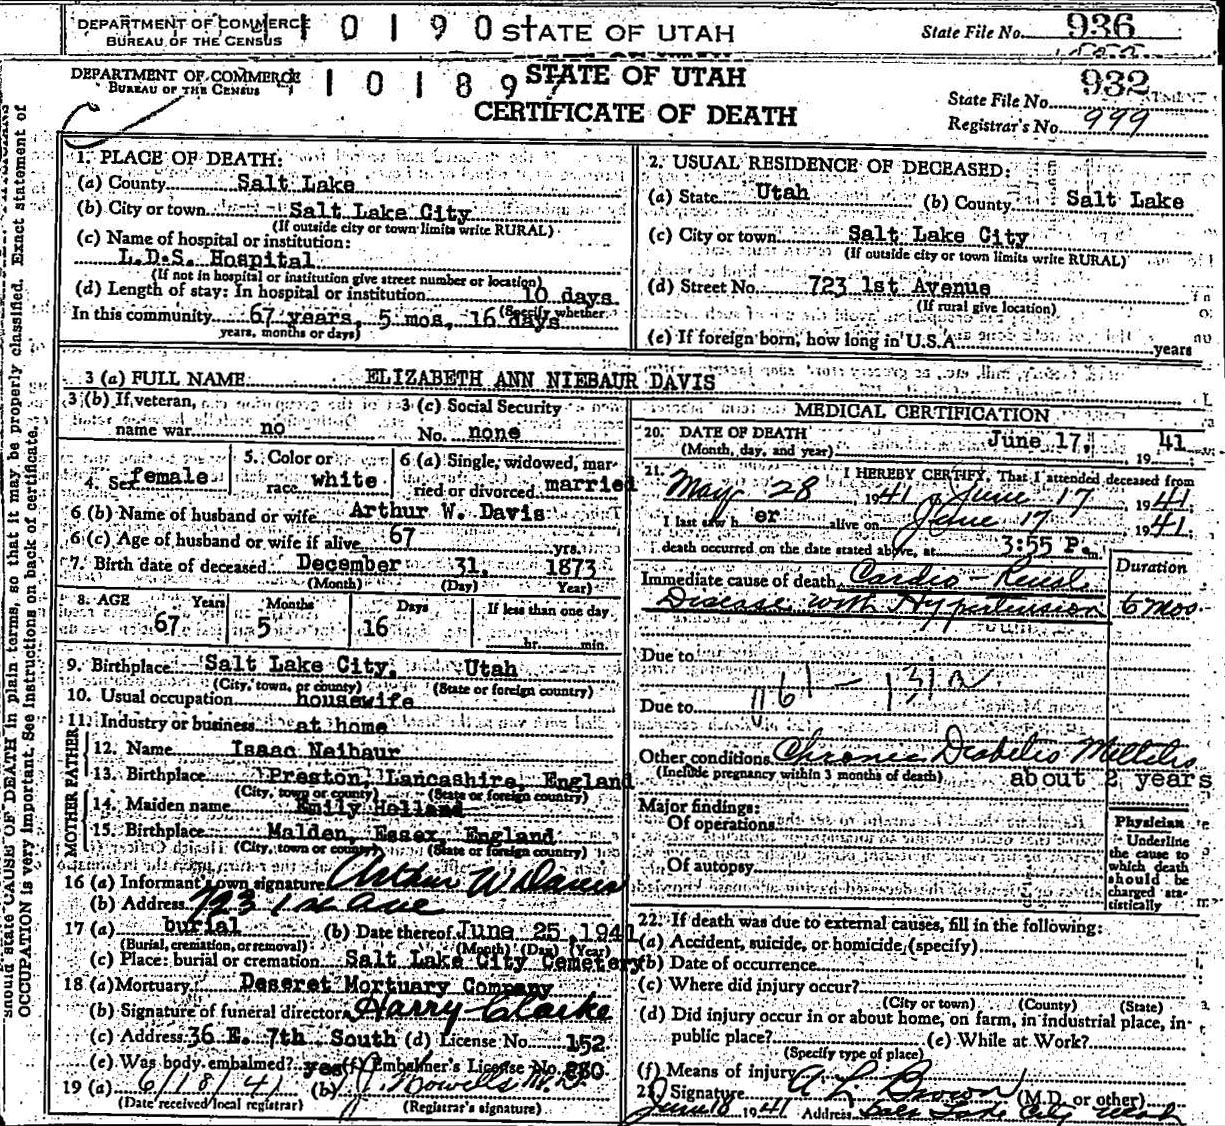 DEPARTMENT OF COMMERCE
BUREAU OF THE CENSUS
1 0 1 9 0 STATE OF UTAH
State File No. 936
DEPARTMENT OF COMMERCE
BUREAU OF THE CENSUS
1 0 1 8 9
STATE OF UTAH
CERTIFICATE OF DEATH
State File No. 932
Registrar's No. 999
should state CAUSE OF DEATH in plain terms, so that it may be properly classified. Exact statement of
OCCUPATION is very important. See instructions on back of certificate.
1. PLACE OF DEATH:
(a) County Salt Lake
(b) City or town Salt Lake City
(If outside city or town limits write RURAL)
(c) Name of hospital or institution:
L.D.S. Hospital
(If not in hospital or institution give street number or location)
(d) Length of stay: In hospital or institution 10 days
(Specify whether
In this community 67 years, 5 mos, 16 days
years, months or days)
2. USUAL RESIDENCE OF DECEASED:
(a) State Utah (b) County Salt Lake
(c) City or town Salt Lake City
(If outside city or town limits write RURAL)
(d) Street No. 723 1st Avenue
(If rural give location)
(e) If foreign born, how long in U.S.A. years
3 (a) FULL NAME ELIZABETH ANN NIEBAUR DAVIS
3 (b) If veteran,
name war no
3 (c) Social Security
No. none
4. Sex female
5. Color or
race white
6 (a) Single, widowed, mar-
ried or divorced married
6 (b) Name of husband or wife Arthur W. Davis
6 (c) Age of husband or wife if alive 67 yrs.
7. Birth date of deceased December 31, 1873
(Month) (Day) Year)
8. AGE Years Months Days If less than one day
67 5 16 hr. min.
9. Birthplace Salt Lake City, Utah
(City, town, or county) (State or foreign country)
10. Usual occupation housewife
11. Industry or business at home
FATHER
12. Name Isaac Neibaur
13. Birthplace Preston, Lancashire, England
(City, town or county) (State or foreign country)
MOTHER
14. Maiden name Emily Holland
15. Birthplace Malden, Essex, England
(City, town or county) (State or foreign country)
16 (a) Informant own signature Arthur W Davis
(b) Address 723 1st Ave
17 (a) burial (b) Date thereof June 25, 1941
(Burial, cremation, or removal) (Month) (Day) (Year)
(c) Place: burial or cremation Salt Lake City Cemetery
18 (a) Mortuary Deseret Mortuary Company
(b) Signature of funeral director Harry Clarke
(c) Address 36 E. 7th South (d) License No. 152
(e) Was body embalmed? yes (f) Embalmer's License No.
19 (a) 6/18/41 (b)
(Date received local registrar) (Registrar's signature)
MEDICAL CERTIFICATION
20. DATE OF DEATH June 17, 1941
(Month, day, and year)
21. I HEREBY CERTIFY, That I attended deceased from
May 28, 1941, to June 17 1941.
I last saw h er alive on June 17 1941.
death occurred on the date stated above, at 3:55 P. m.
Immediate cause of death Cardio-Renal
Duration
Disease with Hypertension 6 mos
Due to
Due to
61-131a
Other conditions Chronic Diabetis Mellitis
(Include pregnancy within 3 months of death) about 2 years
Major findings:
Of operations
Of autopsy
Physician
Underline
the cause to
which death
should be
charged sta-
tistically
22. If death was due to external causes, fill in the following:
(a) Accident, suicide, or homicide (specify)
(b) Date of occurrence
(c) Where did injury occur?
(City or town) (County) (State)
(d) Did injury occur in or about home, on farm, in industrial place, in
public place? (e) While at Work?
(Specify type of place)
(f) Means of injury
Signature A L Brown (M.D. or other)
June 18 1941 Address Salt Lake City Utah